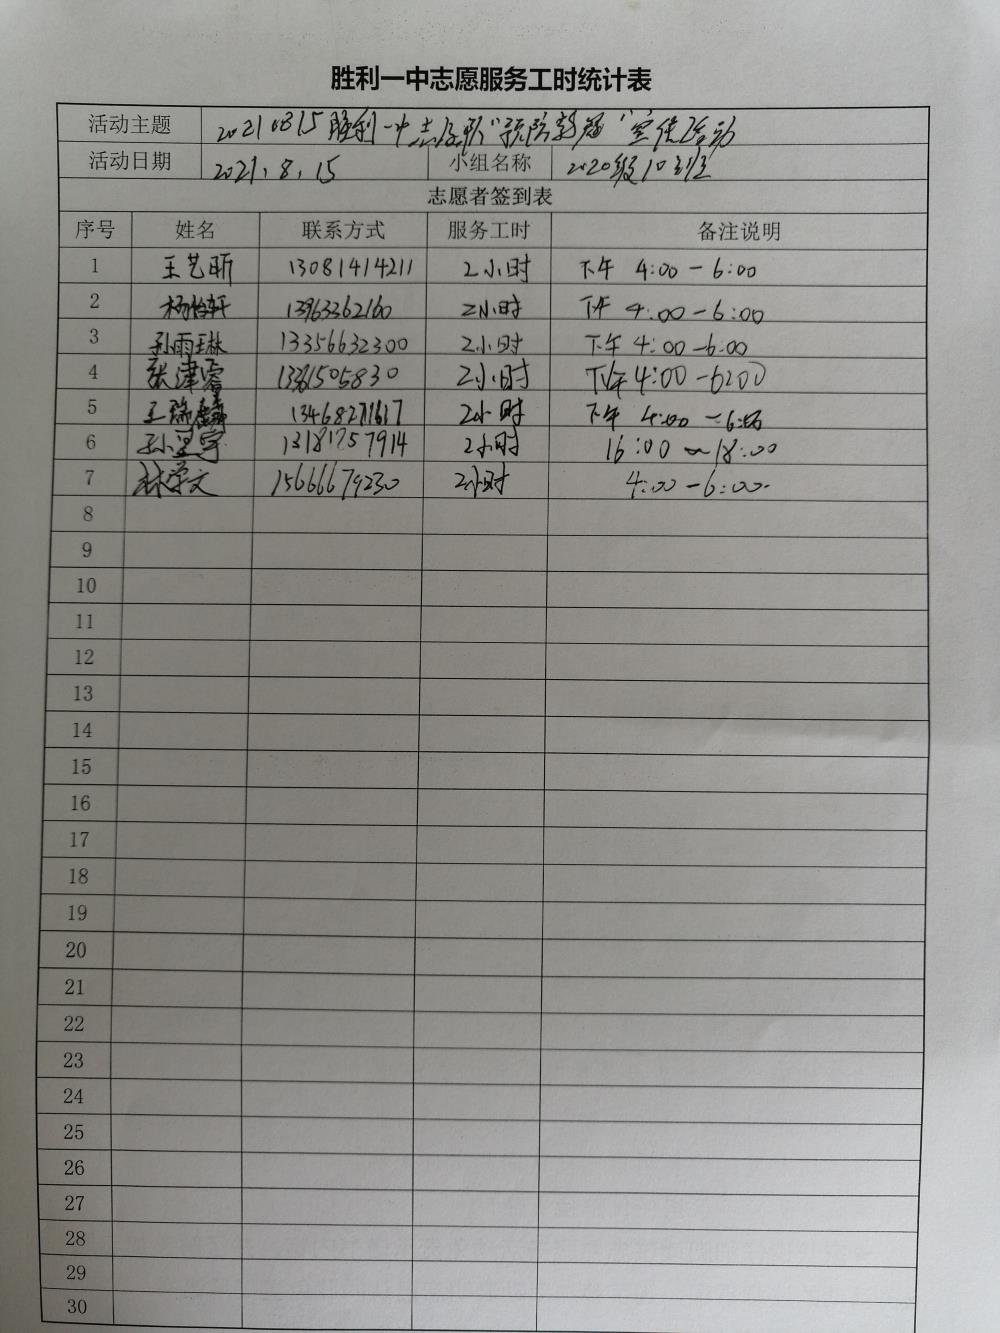 胜利一中志愿服务工时统计表
活动主题 20210815胜利一中志愿服务"预防新冠"宣传活动
活动日期 2021.8.15 小组名称 2020级10班
志愿者签到表
序号 姓名 联系方式 服务工时 备注说明
1 王艺昕 13081414211 2小时 下午 4:00-6:00
2 杨怡轩 13963362160 2小时 下午 4:00-6:00
3 孙雨琳 13356632300 2小时 下午 4:00-6:00
4 张津睿 13361505830 2小时 下午 4:00-6:00
5 王瑞麟 13468271617 2小时 下午 4:00-6:00
6 孙 13181757914 2小时 16:00~18:00
7 林荣文 15666679230 2小时 4:00-6:00.
8
9
10
11
12
13
14
15
16
17
18
19
20
21
22
23
24
25
26
27
28
29
30